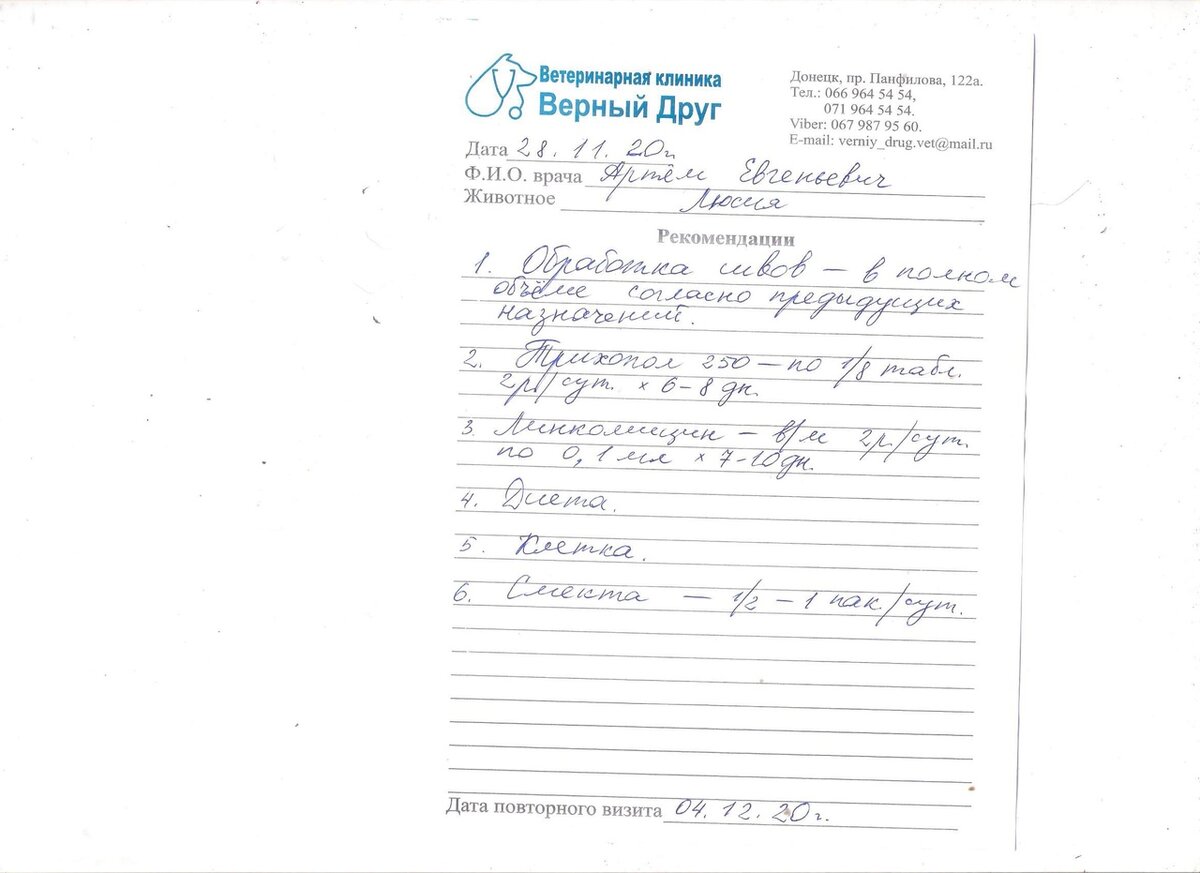 Ветеринарная клиника
Верный Друг
Донецк, пр. Панфилова, 122а.
Тел.: 066 964 54 54,
071 964 54 54.
Viber: 067 987 95 60.
E-mail: verniy_drug.vet@mail.ru
Дата 28. 11. 20г.
Ф.И.О. врача Артём Евгеньевич
Животное Люсия
Рекомендации
1. Обработка швов – в полном
объёме согласно предыдущих
назначений.
2. Трихопол 250 – по 1/8 табл.
2р./сут. × 6-8 дн.
3. Линкомицин – в/м 2р./сут.
по 0,1 мл × 7-10 дн.
4. Диета.
5. Клетка.
6. Смекта – 1/2 – 1 пак./сут.
Дата повторного визита 04. 12. 20г.